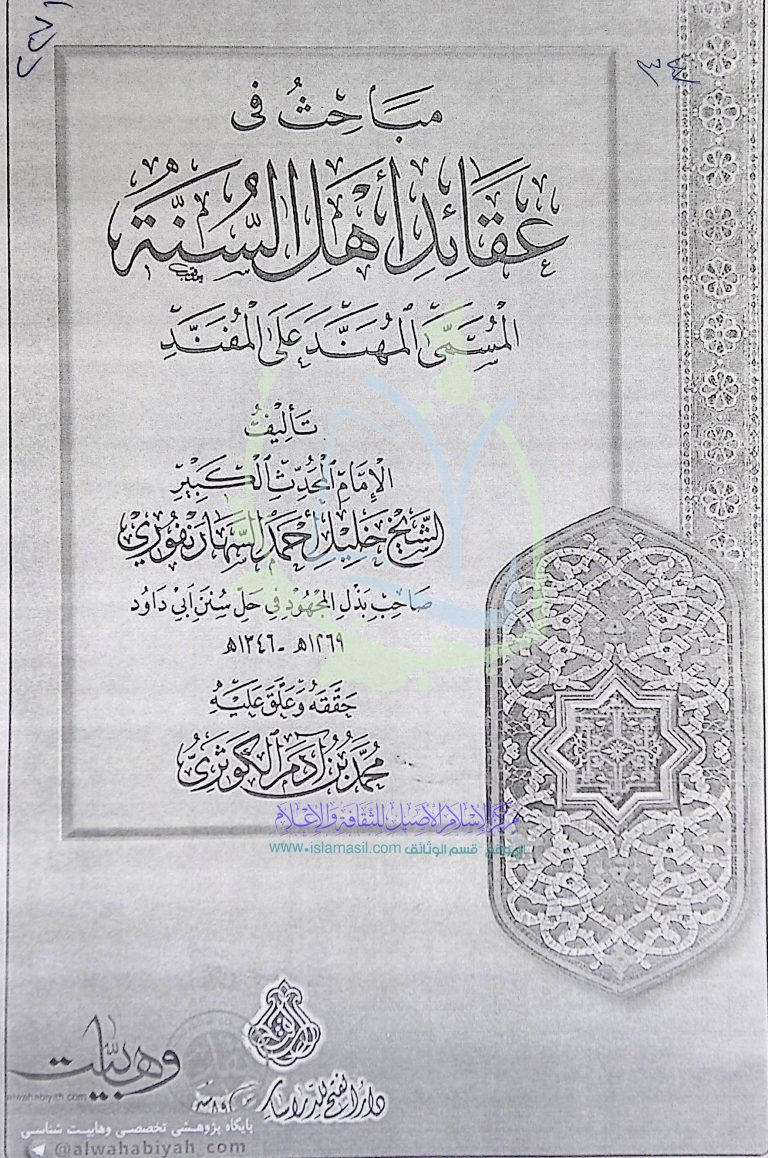 مَبَاحِثُ فِي
عَقَائِدِ أَهْلِ السُّنَّةِ
المُسَمَّى المُهَنَّدَ عَلَى المُفَنَّدِ
تَأْلِيفُ
الإِمَامِ المُحَدِّثِ الكَبِيرِ
الشَّيْخِ خَلِيل أَحْمَد السَّهَارَنْفُورِيّ
صَاحِبِ بَذْلِ المَجْهُودِ فِي حَلِّ سُنَنِ أَبِي دَاوُد
١٢٦٩هـ - ١٣٤٦هـ
حَقَّقَهُ وَعَلَّقَ عَلَيْهِ
مُحَمَّدُ بْنُ آدَمَ الكَوْثَرِيُّ
مركز الإسلام الأصيل للثقافة والإعلام
الموقع: قسم الوثائق www.islamasil.com
دار الفتح للدراسات
وهابیت
alwahabiyah.com
پایگاه پژوهشی تخصصی وهابیت شناسی
@alwahabiyah_com